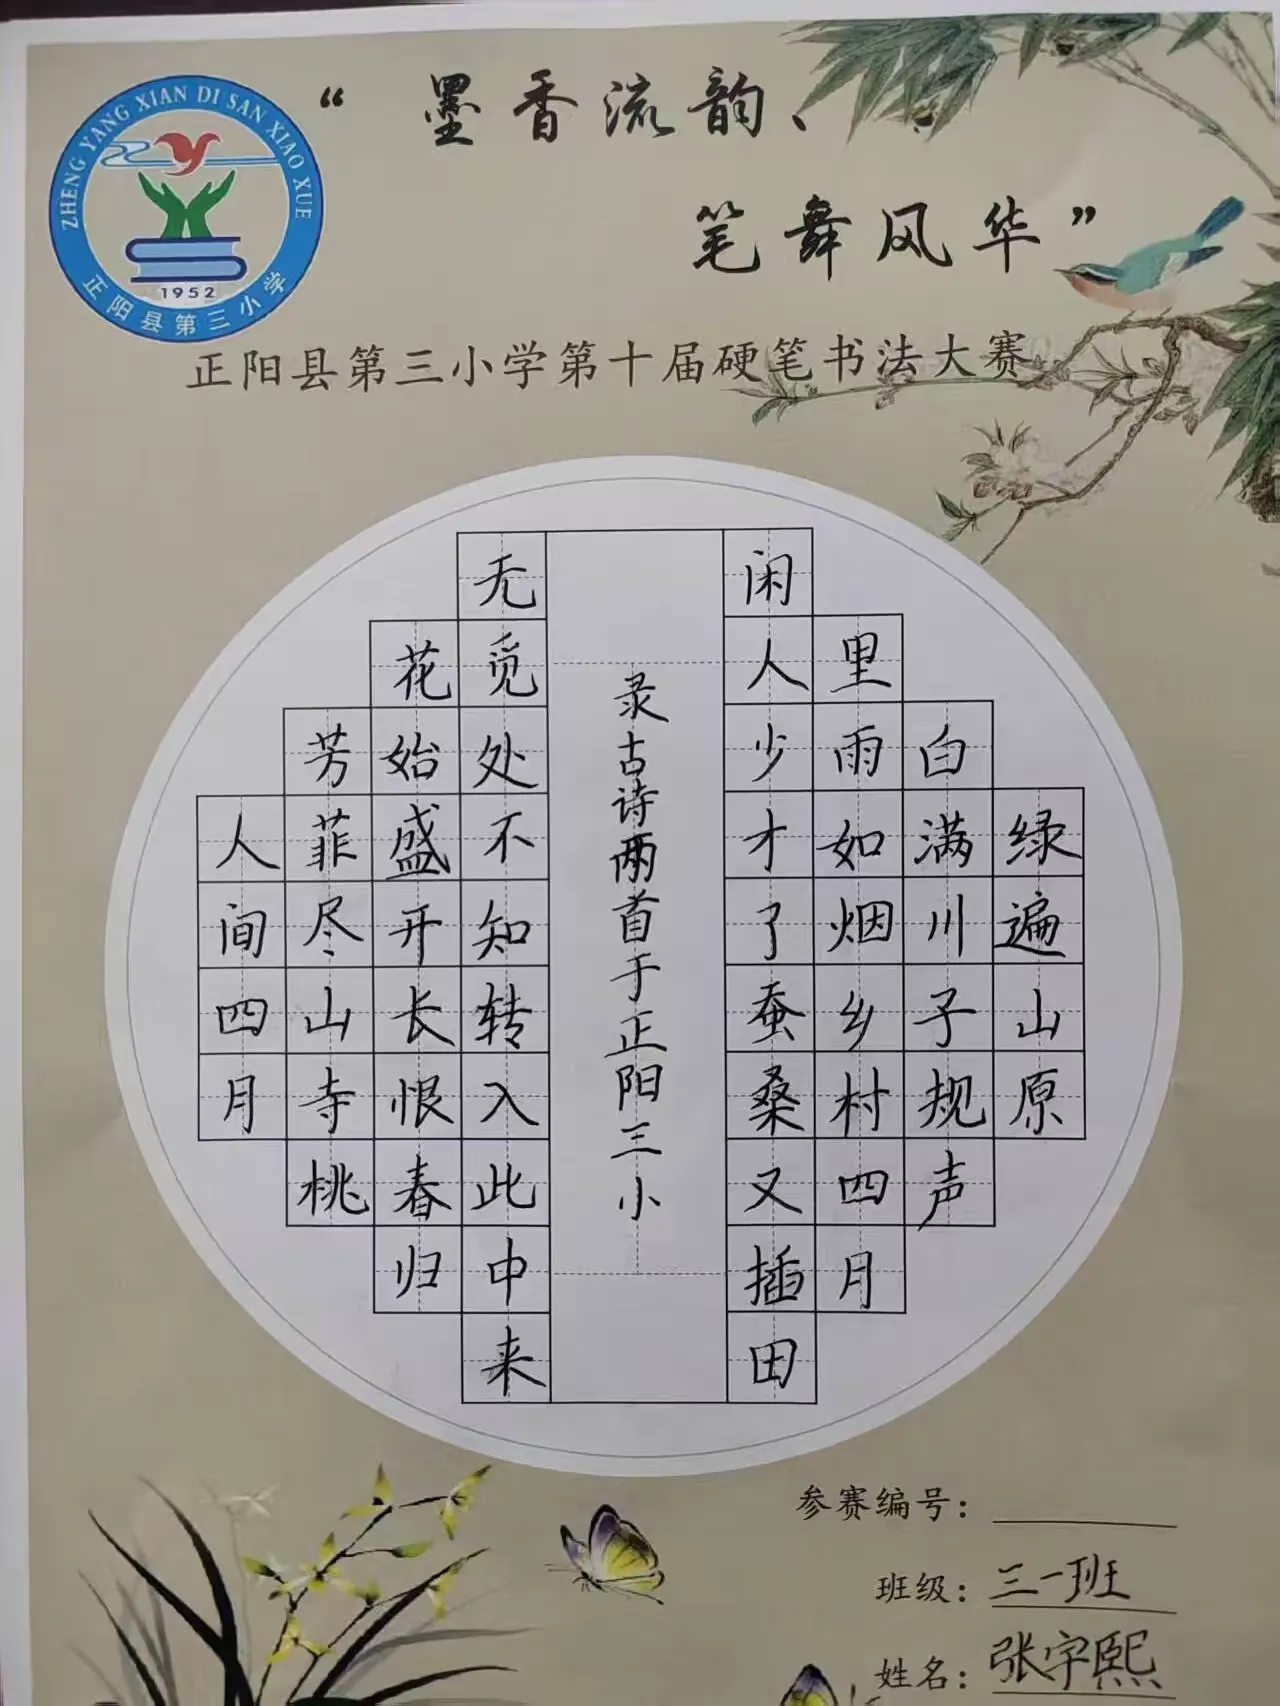 ZHENG YANG XIAN DI SAN XIAO XUE
1952
正阳县第三小学
“墨香流韵、
笔舞风华”
正阳县第三小学第十届硬笔书法大赛
绿遍山原
白满川子规声
里雨如烟乡村四月
闲人少才了蚕桑又插田
录古诗两首于正阳三小
无觅处不知转入此中来
花始盛开长恨春归
芳菲尽山寺桃
人间四月
参赛编号：
班级：三一班
姓名：张宇熙